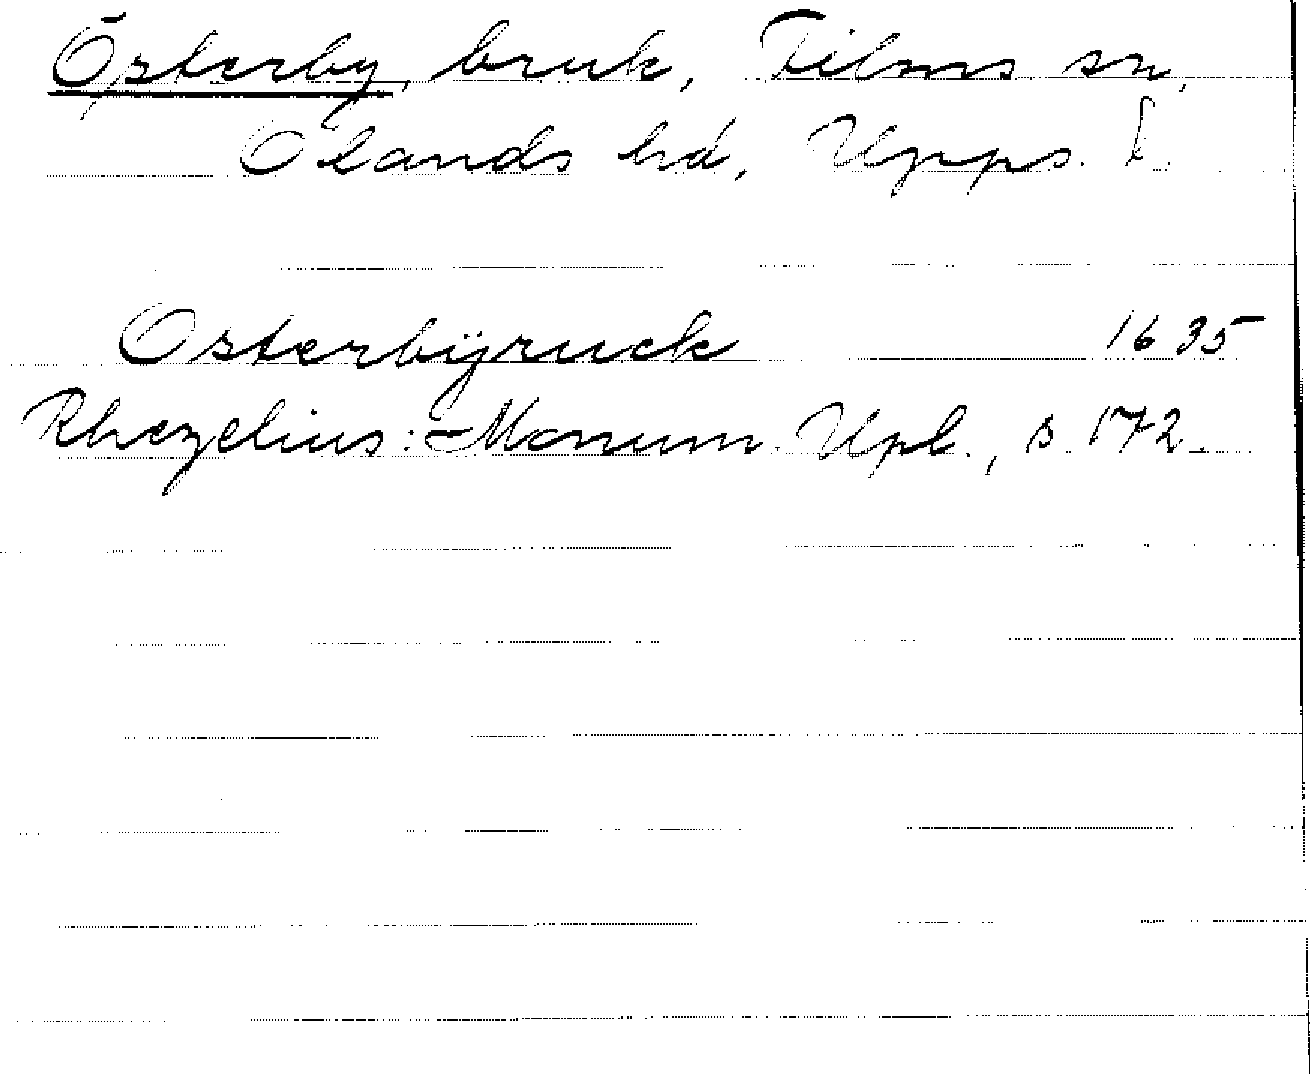 Österby, bruk, Films sn,
Olands hd, Upps. l.
Osterbÿruck 1635
Rhezelius: Monum. Upl., s. 172.